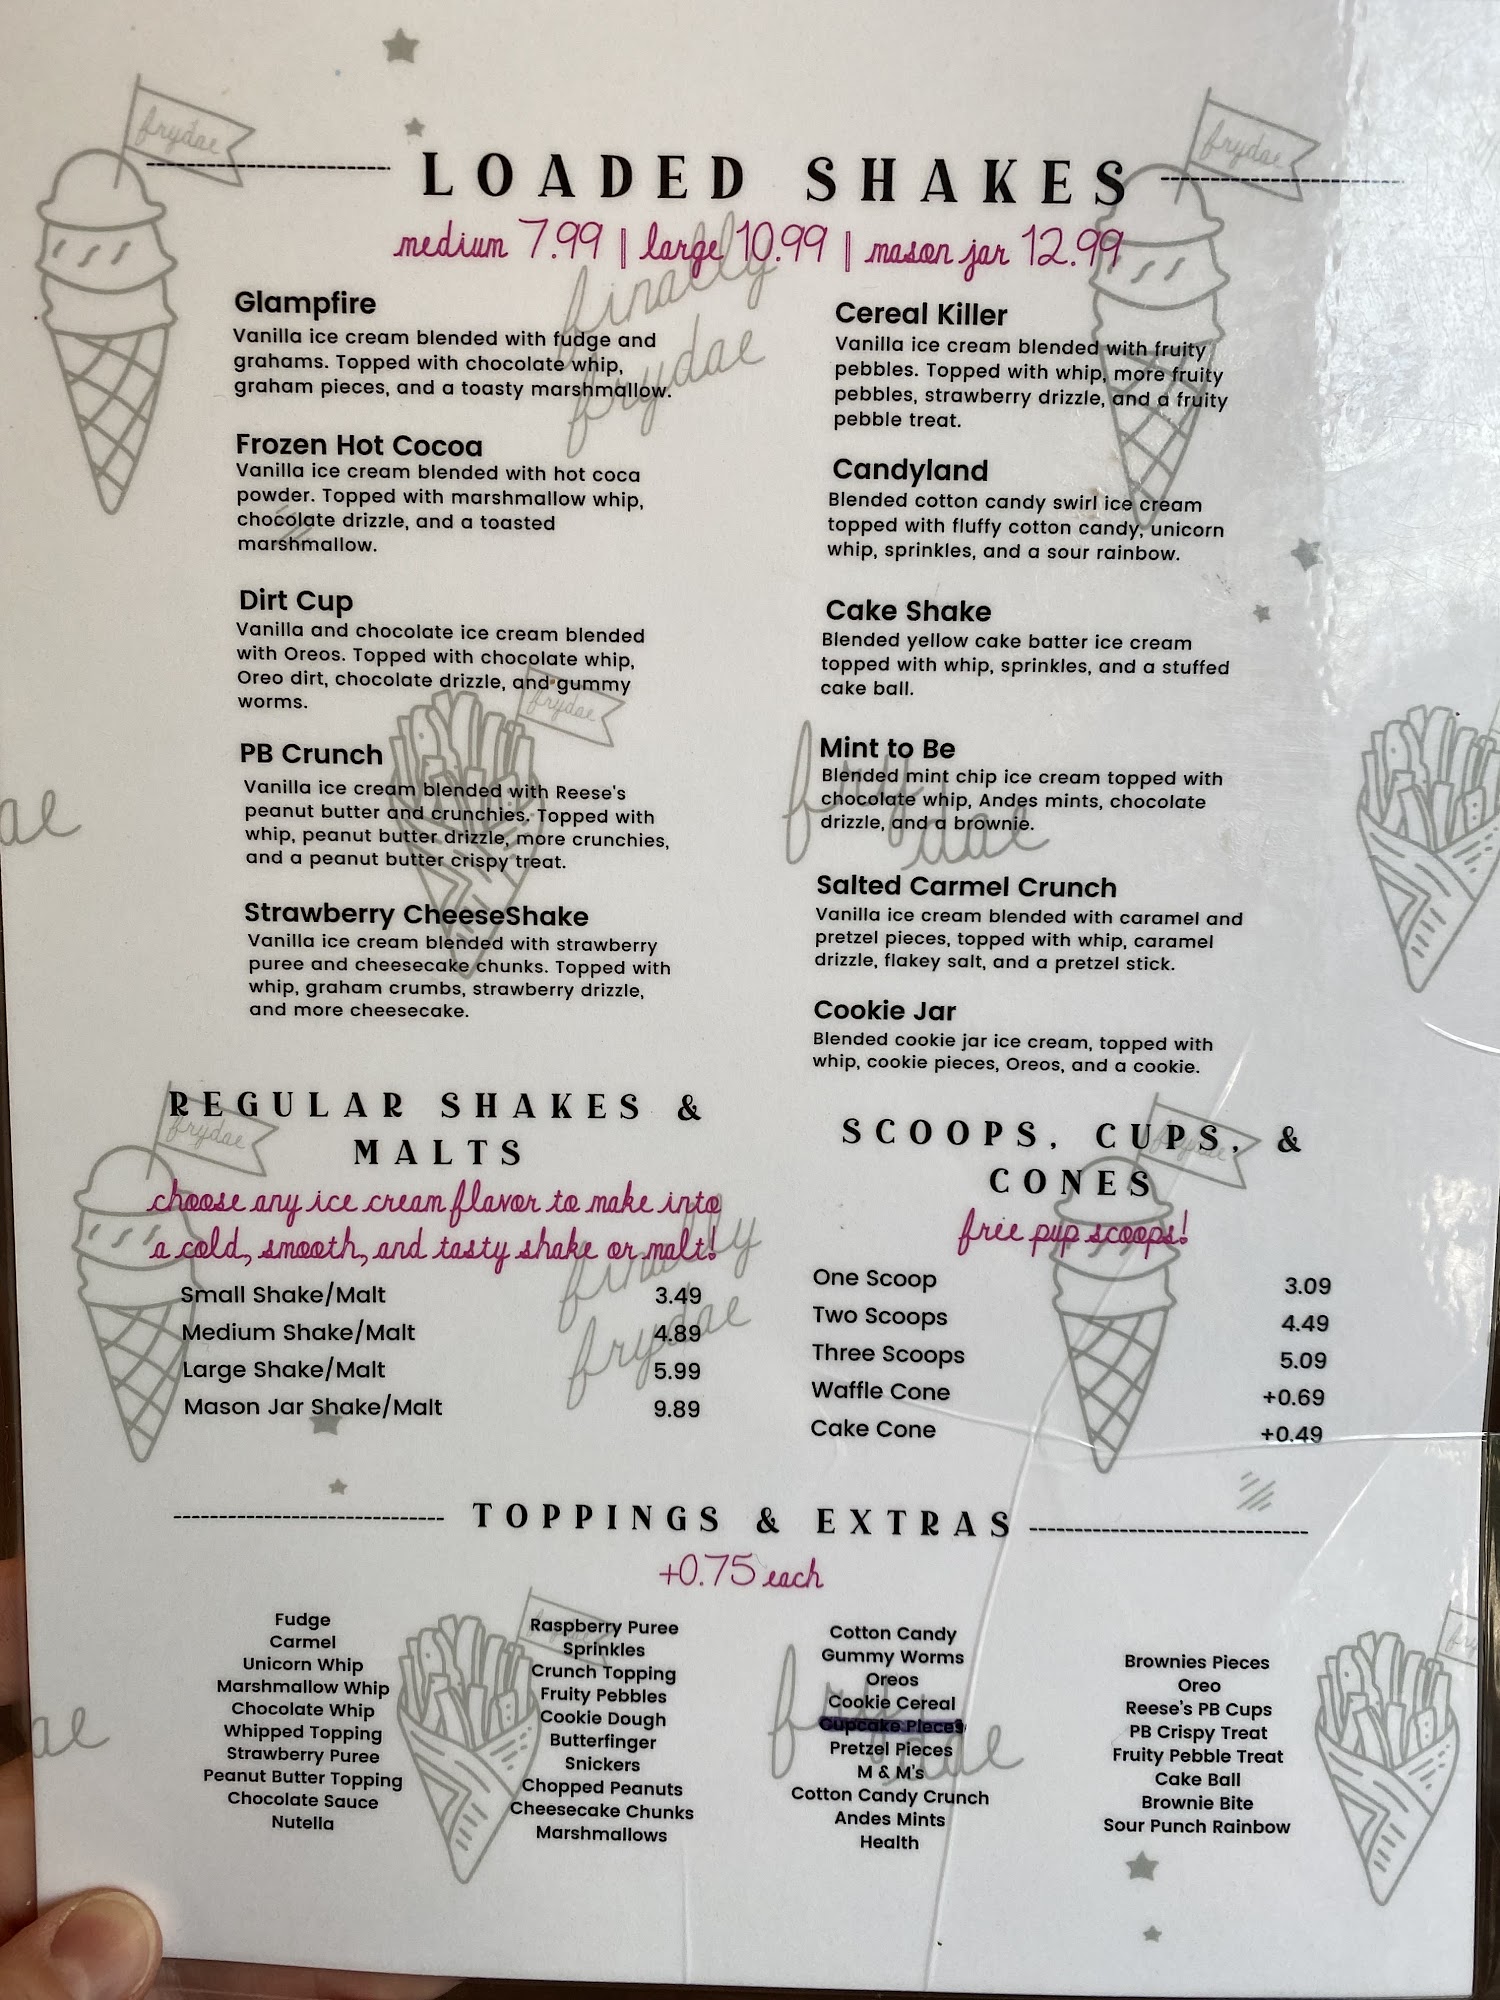 frydae
frydae
LOADED SHAKES
medium 7.99 | large 10.99 | mason jar 12.99
finally
frydae
Glampfire
Vanilla ice cream blended with fudge and
grahams. Topped with chocolate whip,
graham pieces, and a toasty marshmallow.
Frozen Hot Cocoa
Vanilla ice cream blended with hot coca
powder. Topped with marshmallow whip,
chocolate drizzle, and a toasted
marshmallow.
Dirt Cup
Vanilla and chocolate ice cream blended
with Oreos. Topped with chocolate whip,
Oreo dirt, chocolate drizzle, and gummy
worms.
frydae
PB Crunch
Vanilla ice cream blended with Reese's
peanut butter and crunchies. Topped with
whip, peanut butter drizzle, more crunchies,
and a peanut butter crispy treat.
Strawberry CheeseShake
Vanilla ice cream blended with strawberry
puree and cheesecake chunks. Topped with
whip, graham crumbs, strawberry drizzle,
and more cheesecake.
Cereal Killer
Vanilla ice cream blended with fruity
pebbles. Topped with whip, more fruity
pebbles, strawberry drizzle, and a fruity
pebble treat.
Candyland
Blended cotton candy swirl ice cream
topped with fluffy cotton candy, unicorn
whip, sprinkles, and a sour rainbow.
Cake Shake
Blended yellow cake batter ice cream
topped with whip, sprinkles, and a stuffed
cake ball.
Mint to Be
Blended mint chip ice cream topped with
chocolate whip, Andes mints, chocolate
drizzle, and a brownie.
fry
dae
ae
Salted Carmel Crunch
Vanilla ice cream blended with caramel and
pretzel pieces, topped with whip, caramel
drizzle, flakey salt, and a pretzel stick.
Cookie Jar
Blended cookie jar ice cream, topped with
whip, cookie pieces, Oreos, and a cookie.
REGULAR SHAKES &
MALTS
frydae
choose any ice cream flavor to make into
a cold, smooth, and tasty shake or malt!
finally
frydae
Small Shake/Malt 3.49
Medium Shake/Malt 4.89
Large Shake/Malt 5.99
Mason Jar Shake/Malt 9.89
SCOOPS, CUPS, &
CONES
frydae
free pup scoops!
One Scoop 3.09
Two Scoops 4.49
Three Scoops 5.09
Waffle Cone +0.69
Cake Cone +0.49
TOPPINGS & EXTRAS
+0.75 each
Fudge
Carmel
Unicorn Whip
Marshmallow Whip
Chocolate Whip
Whipped Topping
Strawberry Puree
Peanut Butter Topping
Chocolate Sauce
Nutella
ae
frydae
Raspberry Puree
Sprinkles
Crunch Topping
Fruity Pebbles
Cookie Dough
Butterfinger
Snickers
Chopped Peanuts
Cheesecake Chunks
Marshmallows
Cotton Candy
Gummy Worms
Oreos
Cookie Cereal
Cupcake Pieces
Pretzel Pieces
M & M's
Cotton Candy Crunch
Andes Mints
Health
fry
dae
Brownies Pieces
Oreo
Reese's PB Cups
PB Crispy Treat
Fruity Pebble Treat
Cake Ball
Brownie Bite
Sour Punch Rainbow